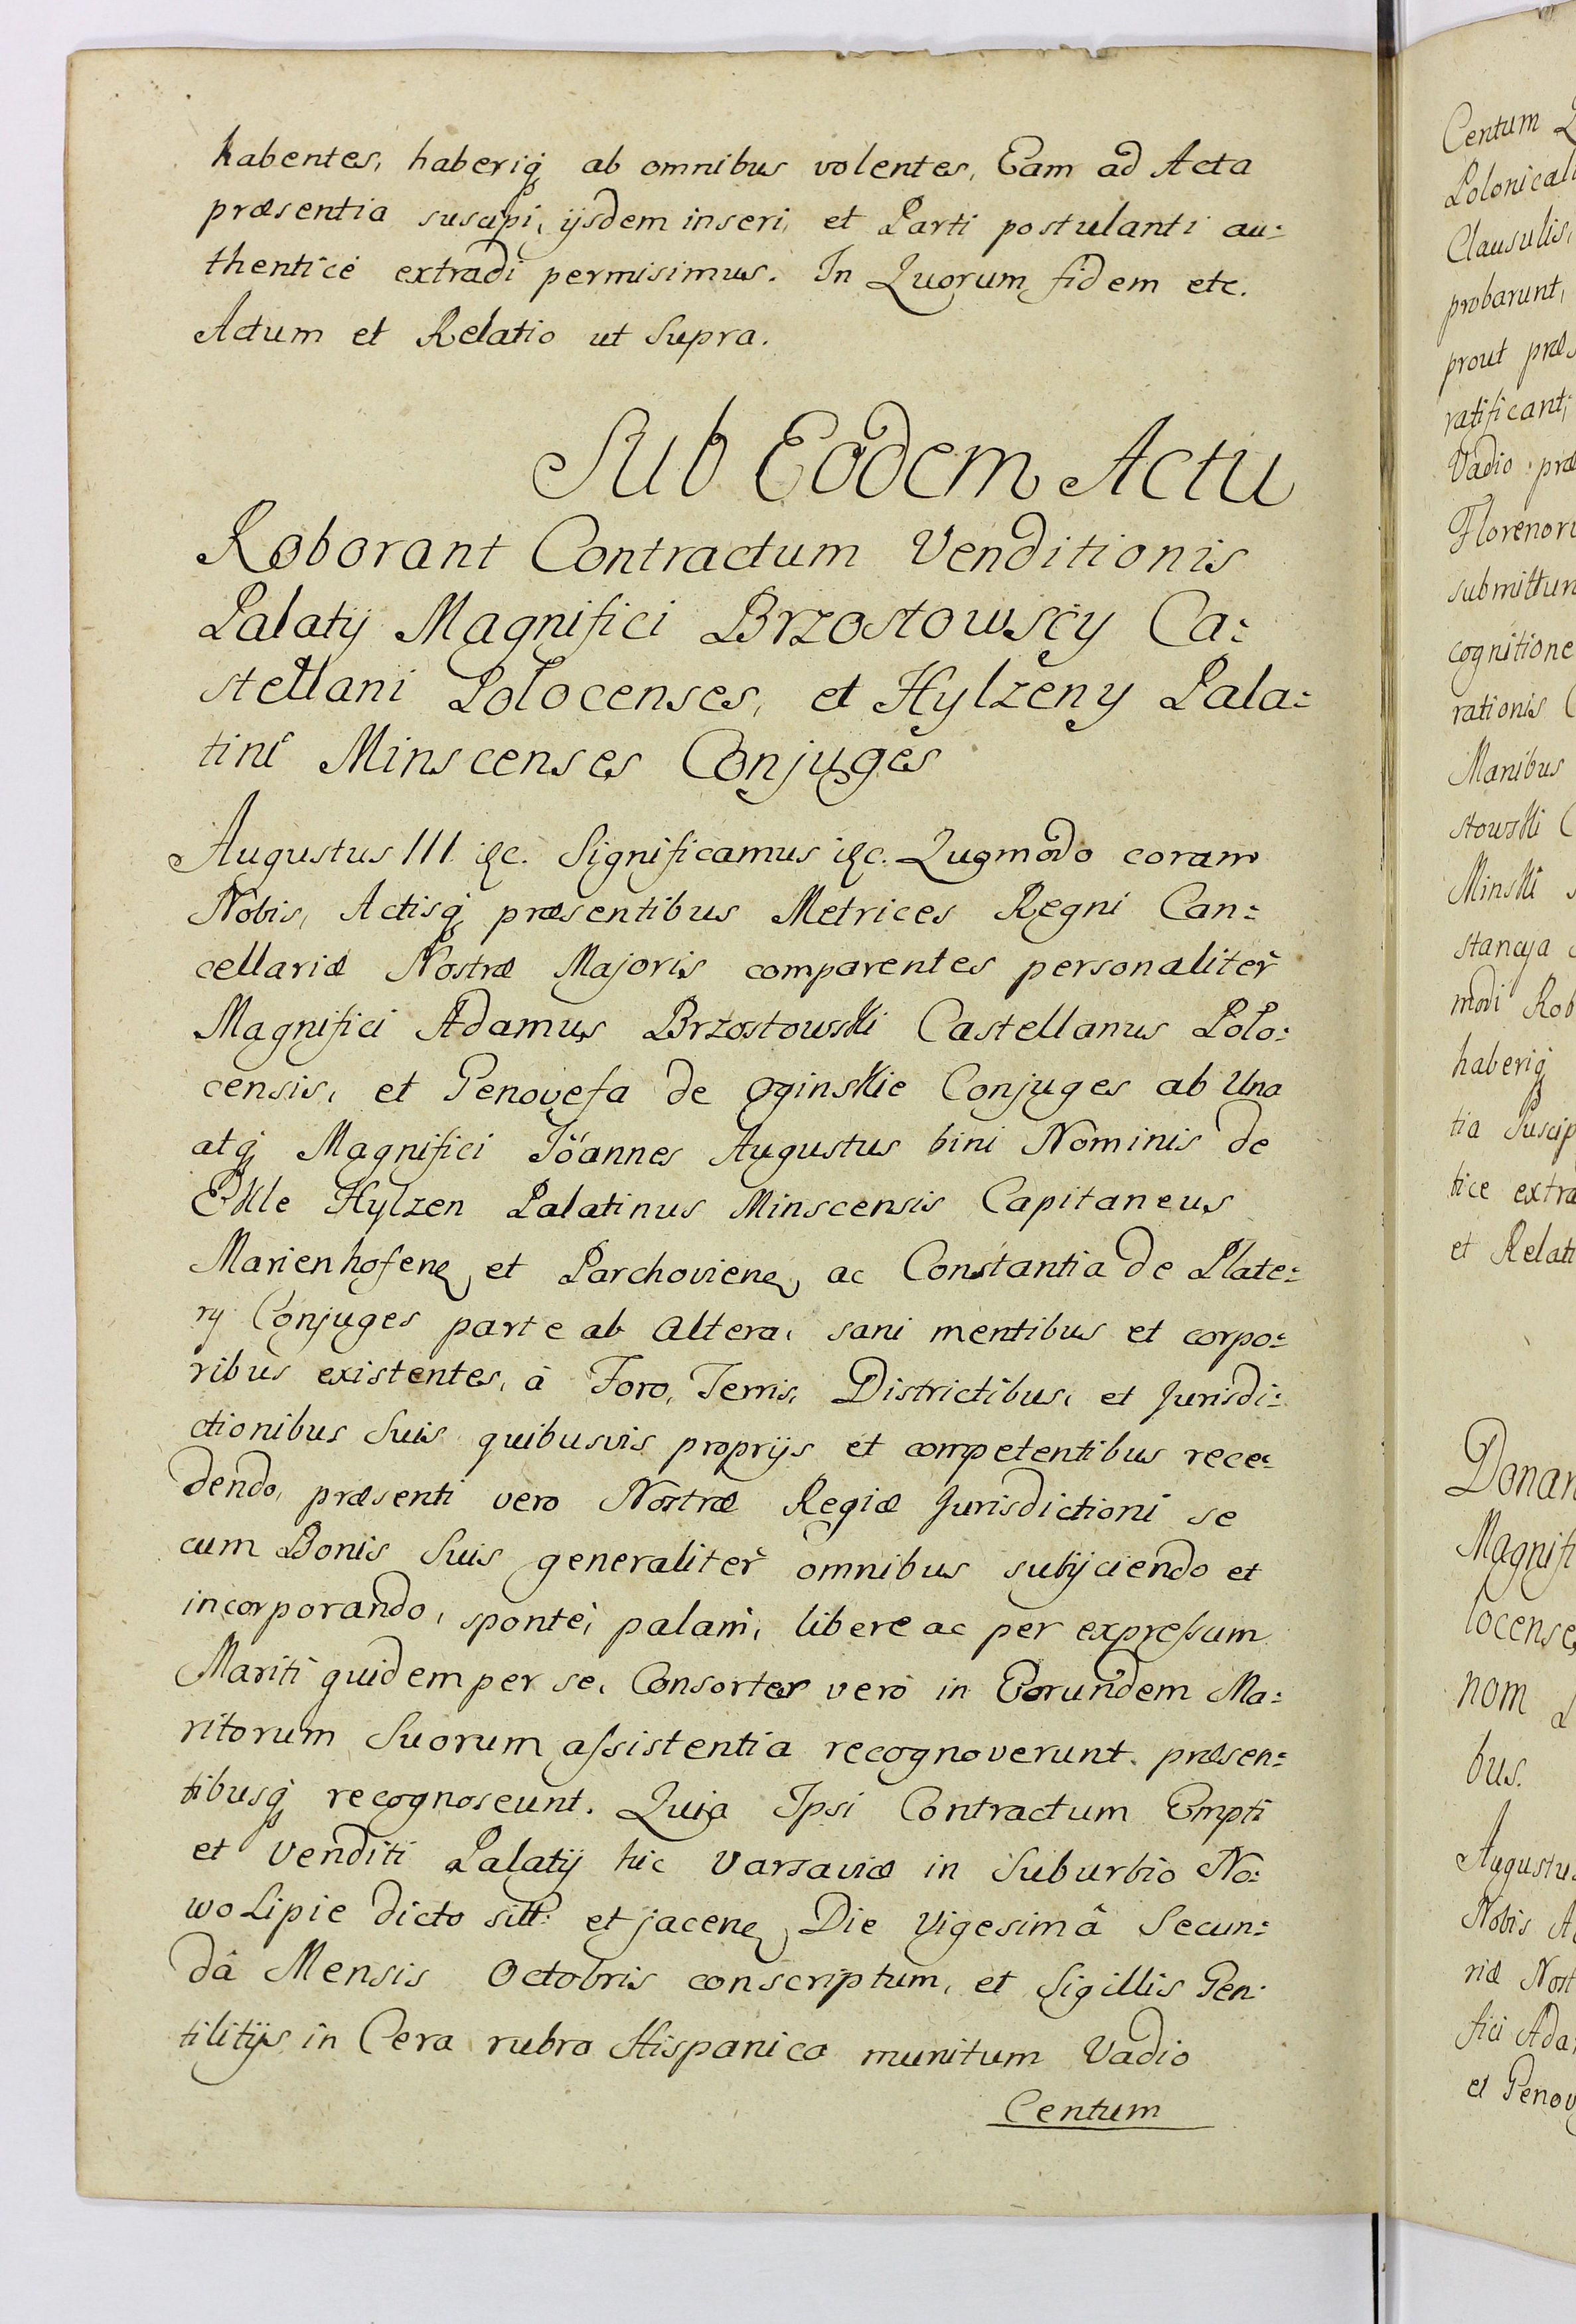 habentes, haberiq́ ab omnibus volentes, Eam ad Acta
præsentia suscipi, ijsdem inseri, et Parti postulanti au=
thenticè extradi permisimus. In Quorum fidem etc.
Actum et Relatio ut Supra.
Sub Eodem Actu
Roborant Contractum Venditionis
Palatij Magnifici Brzostowscy Ca=
stellani Polocenses, et Hylzeny Pala=
tini Minscenses Conjuges
Augustus III. &c. Significamus &c. Quomodo coram
Nobis, Actisq́ præsentibus Metrices Regni Can=
cellariæ Nostræ Majoris comparentes personaliter
Magnifici Adamus Brzostowski Castellanus Polo=
censis, et Genovefa de Oginskie Conjuges ab Una
atq́ Magnifici Joannes Augustus bini Nominis de
Ekle Hylzen Palatinus Minscensis Capitaneus
Marienhofen et Parchovien ac Constantia de Plate=
ry Conjuges parte ab altera, sani mentibus et corpo=
ribus existentes, à Foro, Terris, Districtibus, et Jurisdi=
ctionibus Suis quibusvis proprijs et competentibus rece=
dendo, præsenti vero Nostræ Regiæ Jurisdictioni se
cum Bonis Suis generaliter omnibus subijciendo et
incorporando, spontè, palam, libere ac per expressum
Mariti quidem per se, Consortes verò in Eorundem Ma=
ritorum Suorum assistentia recognoverunt, præsen=
tibusq́ recognoscunt. Quia Ipsi Contractum Empti
et Venditi Palatij hic Varsaviæ in Suburbio No=
wolipie dicto sitt: et jacen Die Vigesimâ Secun=
dâ Mensis Octobris conscriptum, et Sigillis Gen=
tilitijs in Cera rubra Hispanica munitum Vadio
Centum
Centum
Polonical
Clausulis,
probarunt,
prout præs
ratificant,
Vadio præ
Florenor
submittun
cognitione
rationis
Manibus
stowski
Minski
stancya
modi Rob
haberiq́
tia Suscip
tice extra
et Relati
Donan
Magnifi
locenses
nom
bus.
Augustus
Nobis A
riæ Nost
fici Ada
et Genov